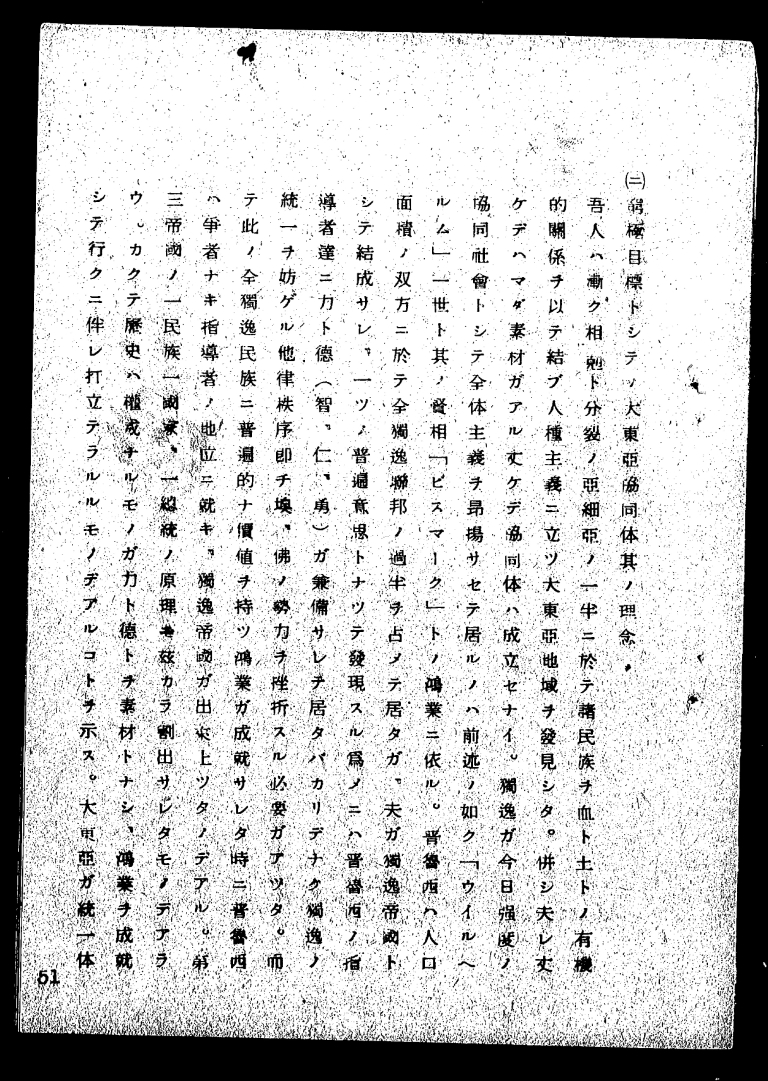 ㈡ 窮極目標トシテノ大東亞協同体其ノ理念。
吾人ハ漸ク相剋ト分裂ノ亞細亞ノ一半ニ於テ諸民族ヲ血ト土トノ有機
的關係ヲ以テ結ブ人種主義ニ立ツ大東亞地域ヲ發見シタ。併シ夫レ丈
ケデハマダ素材ガアル丈ケデ協同体ハ成立セナイ。獨逸ガ今日强度ノ
協同社會トシテ全体主義ヲ昂揚サセテ居ルノハ前述ノ如ク「ウイルヘ
ルム」一世ト其ノ賢相「ビスマーク」トノ鴻業ニ依ル。普魯西ハ人口
面積ノ双方ニ於テ全獨逸聯邦ノ過半ヲ占メテ居タガ、夫ガ獨逸帝國ト
シテ結成サレ、一ツノ普遍意思トナツテ發現スル爲メニハ普魯西ノ指
導者達ニ力ト德（智、仁、勇）ガ兼備サレテ居タバカリデナク獨逸ノ
統一ヲ妨ゲル他律秩序卽チ墺、佛ノ勢力ヲ挫折スル必要ガアツタ。而
テ此ノ全獨逸民族ニ普遍的ナ價値ヲ持ツ鴻業ガ成就サレタ時ニ普魯西
ハ爭者ナキ指導者ノ地位ニ就キ、獨逸帝國ガ出來上ツタノデアル。第
三帝國ノ一民族一國家、一總統ノ原理モ玆カラ割出サレタモノデアラ
ウ。カクテ歷史ハ權威ナルモノガ力ト德トヲ素材トナシ、鴻業ヲ成就
シテ行クニ伴レ打立テラルルモノデアルコトヲ示ス。大東亞ガ統一体
51